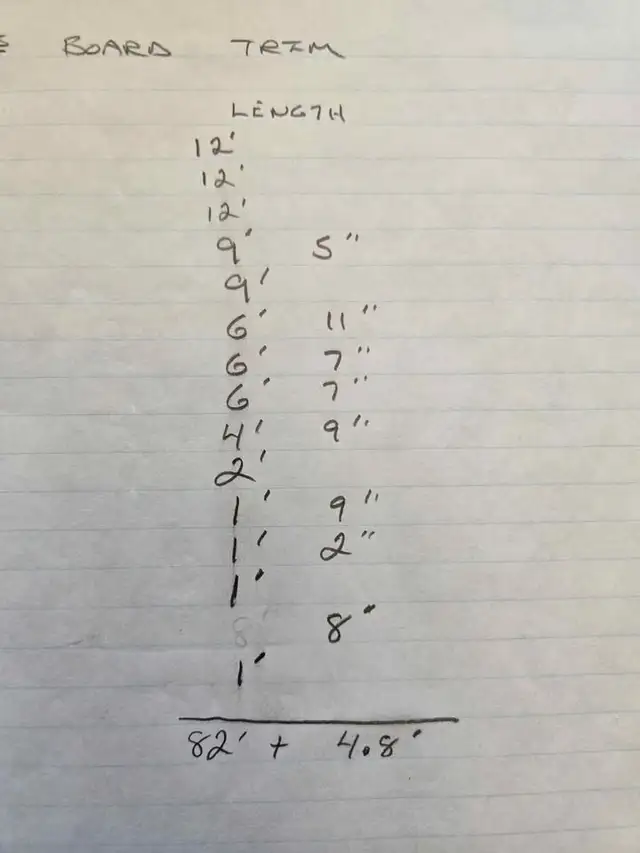 BOARD TRIM
LENGTH
12'
12'
12'
9' 5"
9'
6' 11"
6' 7"
6' 7"
4' 9"
2'
1' 9"
1' 2"
1'
8"
1'
82' + 4.8'